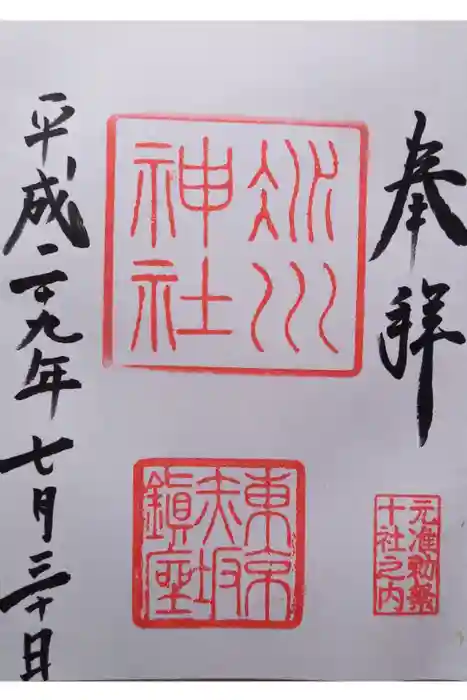 奉拝
元准勅祭
十社之内
冰川
神社
東京
赤坂
鎭座
平成二十九年七月三十日